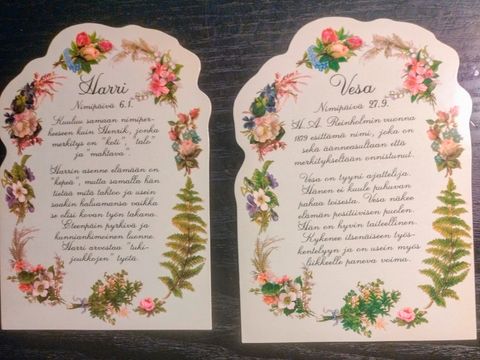 Harri
Nimipäivä 6.1.
Kuuluu samaan nimiper-
heeseen kuin Henrik, jonka
merkitys on "koti", "talo"
ja "mahtava".
Harrin asenne elämään on
"kepeä", mutta samalla hän
tietää mitä tahtoo ja usein
saakin haluamansa vaikka
se olisi kovan työn takana.
Eteenpäin pyrkivä ja
kunnianhimoinen luonne.
Harri arvostaa "tuki-
joukkojen" työtä.
Vesa
Nimipäivä 27.9.
H. A. Reinholmin vuonna
1879 esittämä nimi, joka on
sekä äänneasultaan että
merkitykseltään onnistunut.
Vesa on tyyni ajattelija.
Hänen ei kuule puhuvan
pahaa toisesta. Vesa näkee
elämän positiivisen puolen.
Hän on hyvin taiteellinen.
Kykenee itsenäiseen työs-
kentelyyn ja on usein myös
liikkeelle paneva voima.